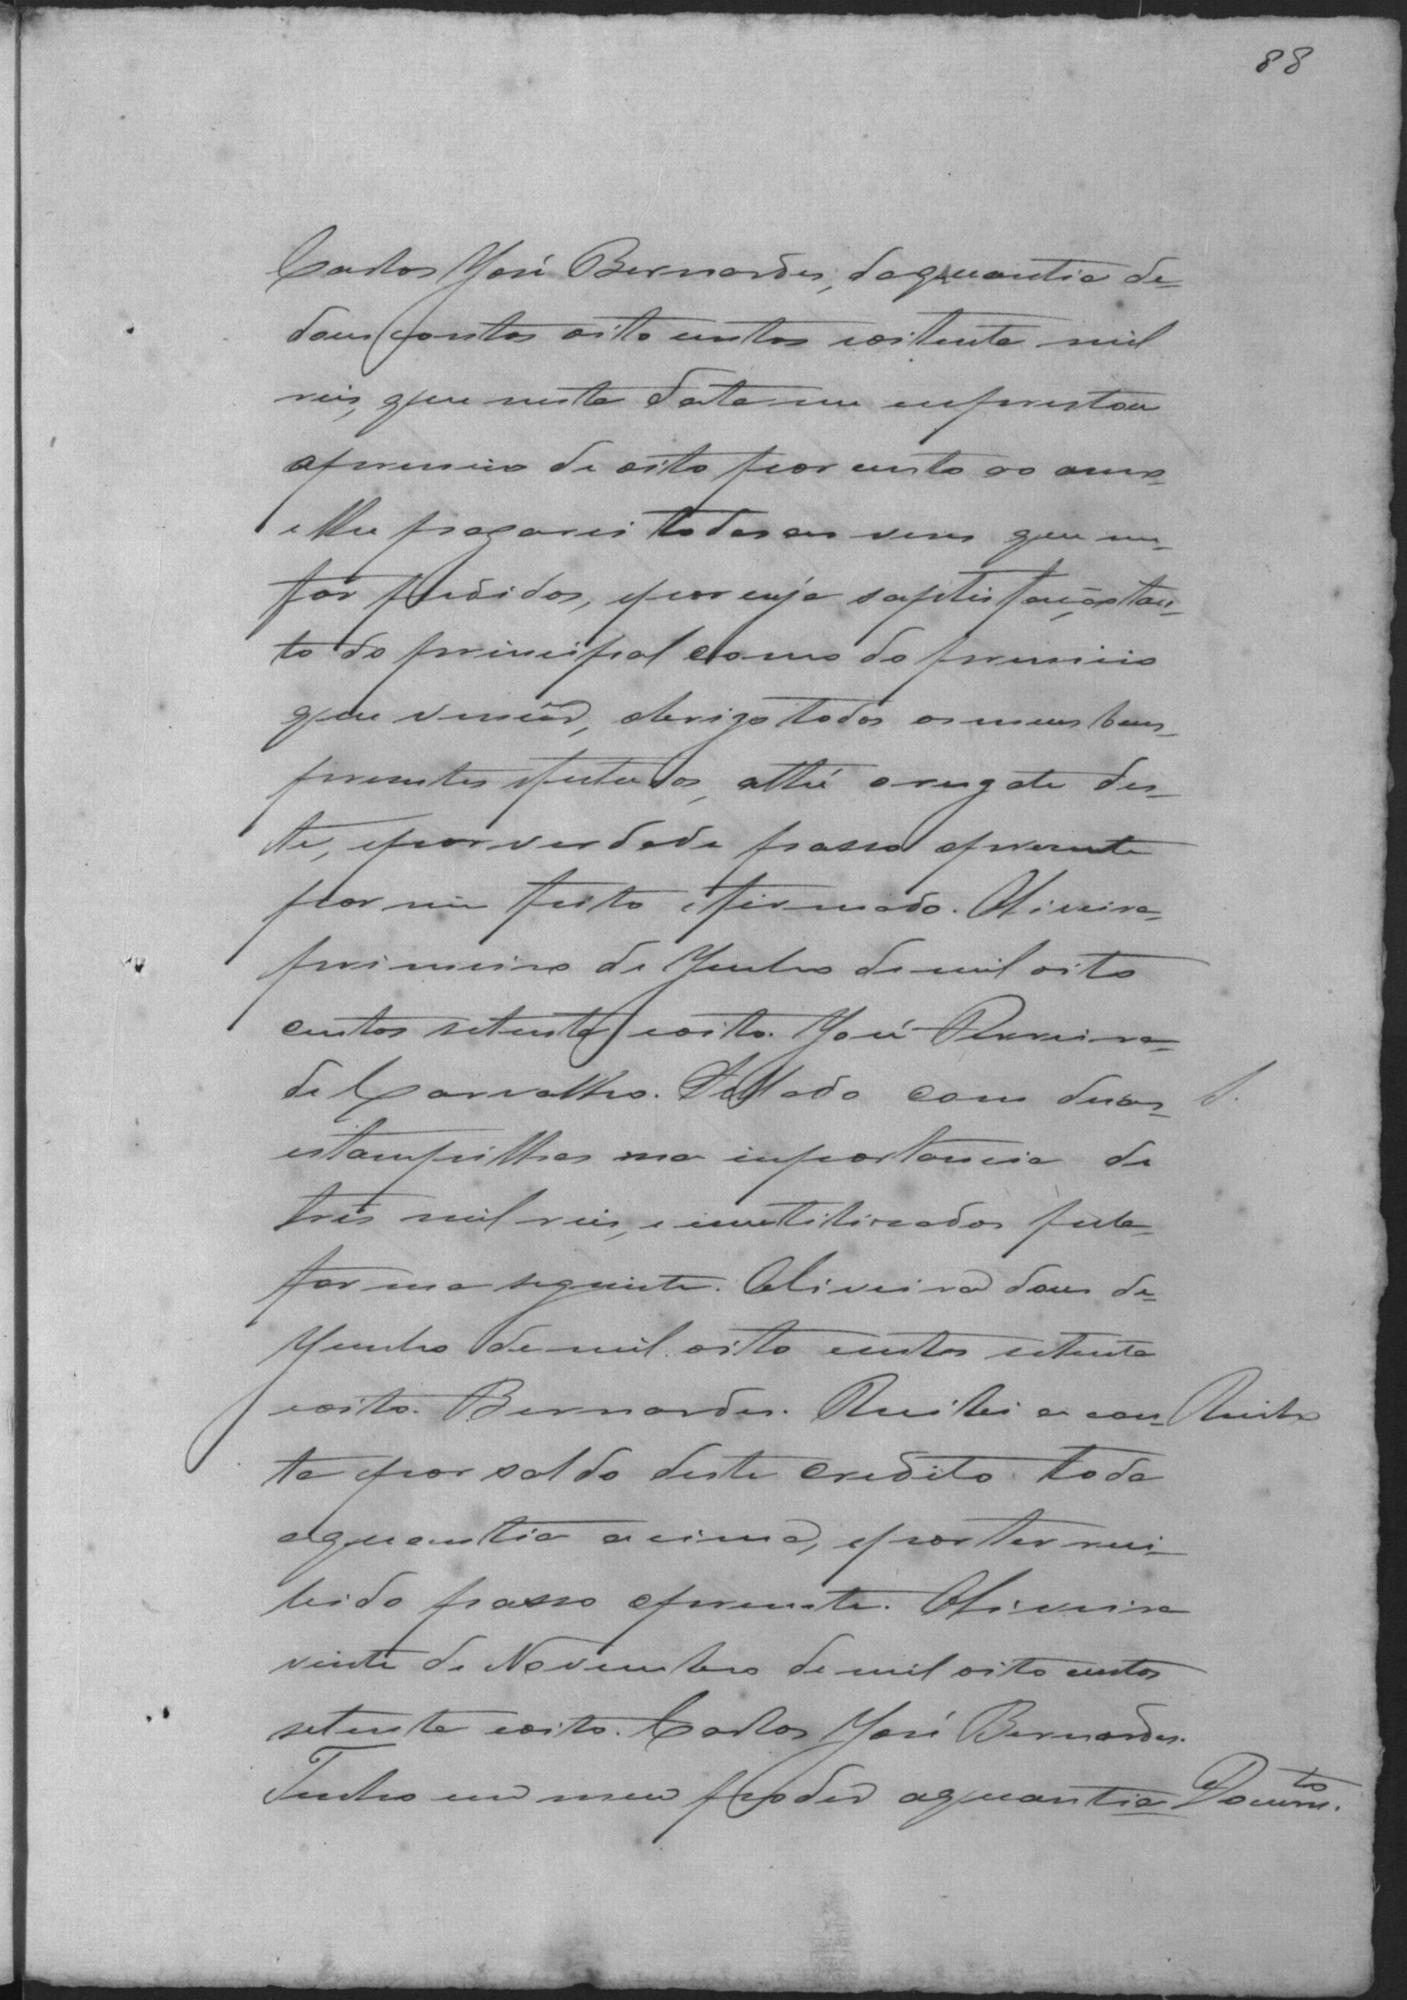 88
Carlos José Bernardes, da quantia de
dous contos oito centos e oitenta mil
reis, que nesta data me emprestou
a premio de oito por cento ao anno
e lhe pagarei todas as vezes que me
for pedidos, e por cuja satisfação tan-
to do principal como do premio
que vencer, obrigo todos os meus bens
presentes e futuros, athé o resgate des-
te, e por verdade passo o presente
por mim feito e firmado. Oliveira
primeiro de Junho de mil oito
centos setenta e oito. José Ferreira
de Carvalho. Sellado com duas S.
estampilhas na importancia de
tres mil reis, e inutilizados pela
forma seguinte. Oliveira dous de
Junho de mil oito centos setenta
e oito. Bernardes. Recebi a con- Recibo
ta e por saldo deste credito toda
a quantia acima, e por ter rece-
bido passo o presente. Oliveira
vinte de Novembro de mil oito centos
setenta e oito. Carlos José Bernardes.
Tenho em meu poder a quantia Docum.to